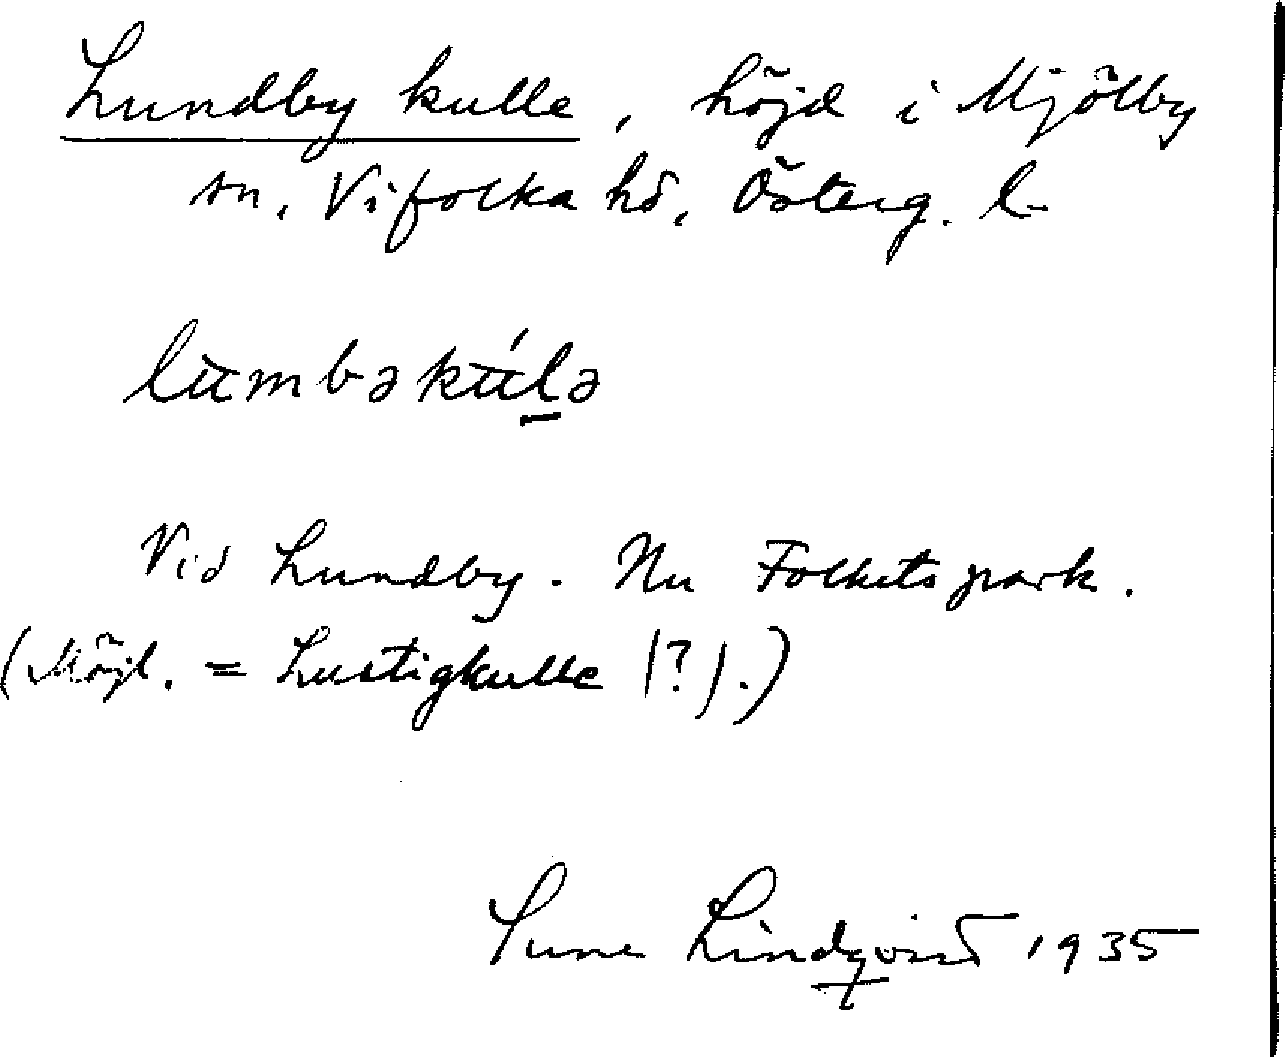 Lundby kulle, höjd i Mjölby
sn, Vifolka hd, Österg. l.
lumbəkúlə
Vid Lundby. Nu Folkets park.
(Möjl. = Lustigkulle (?).)
Sune Lindqvist 1935